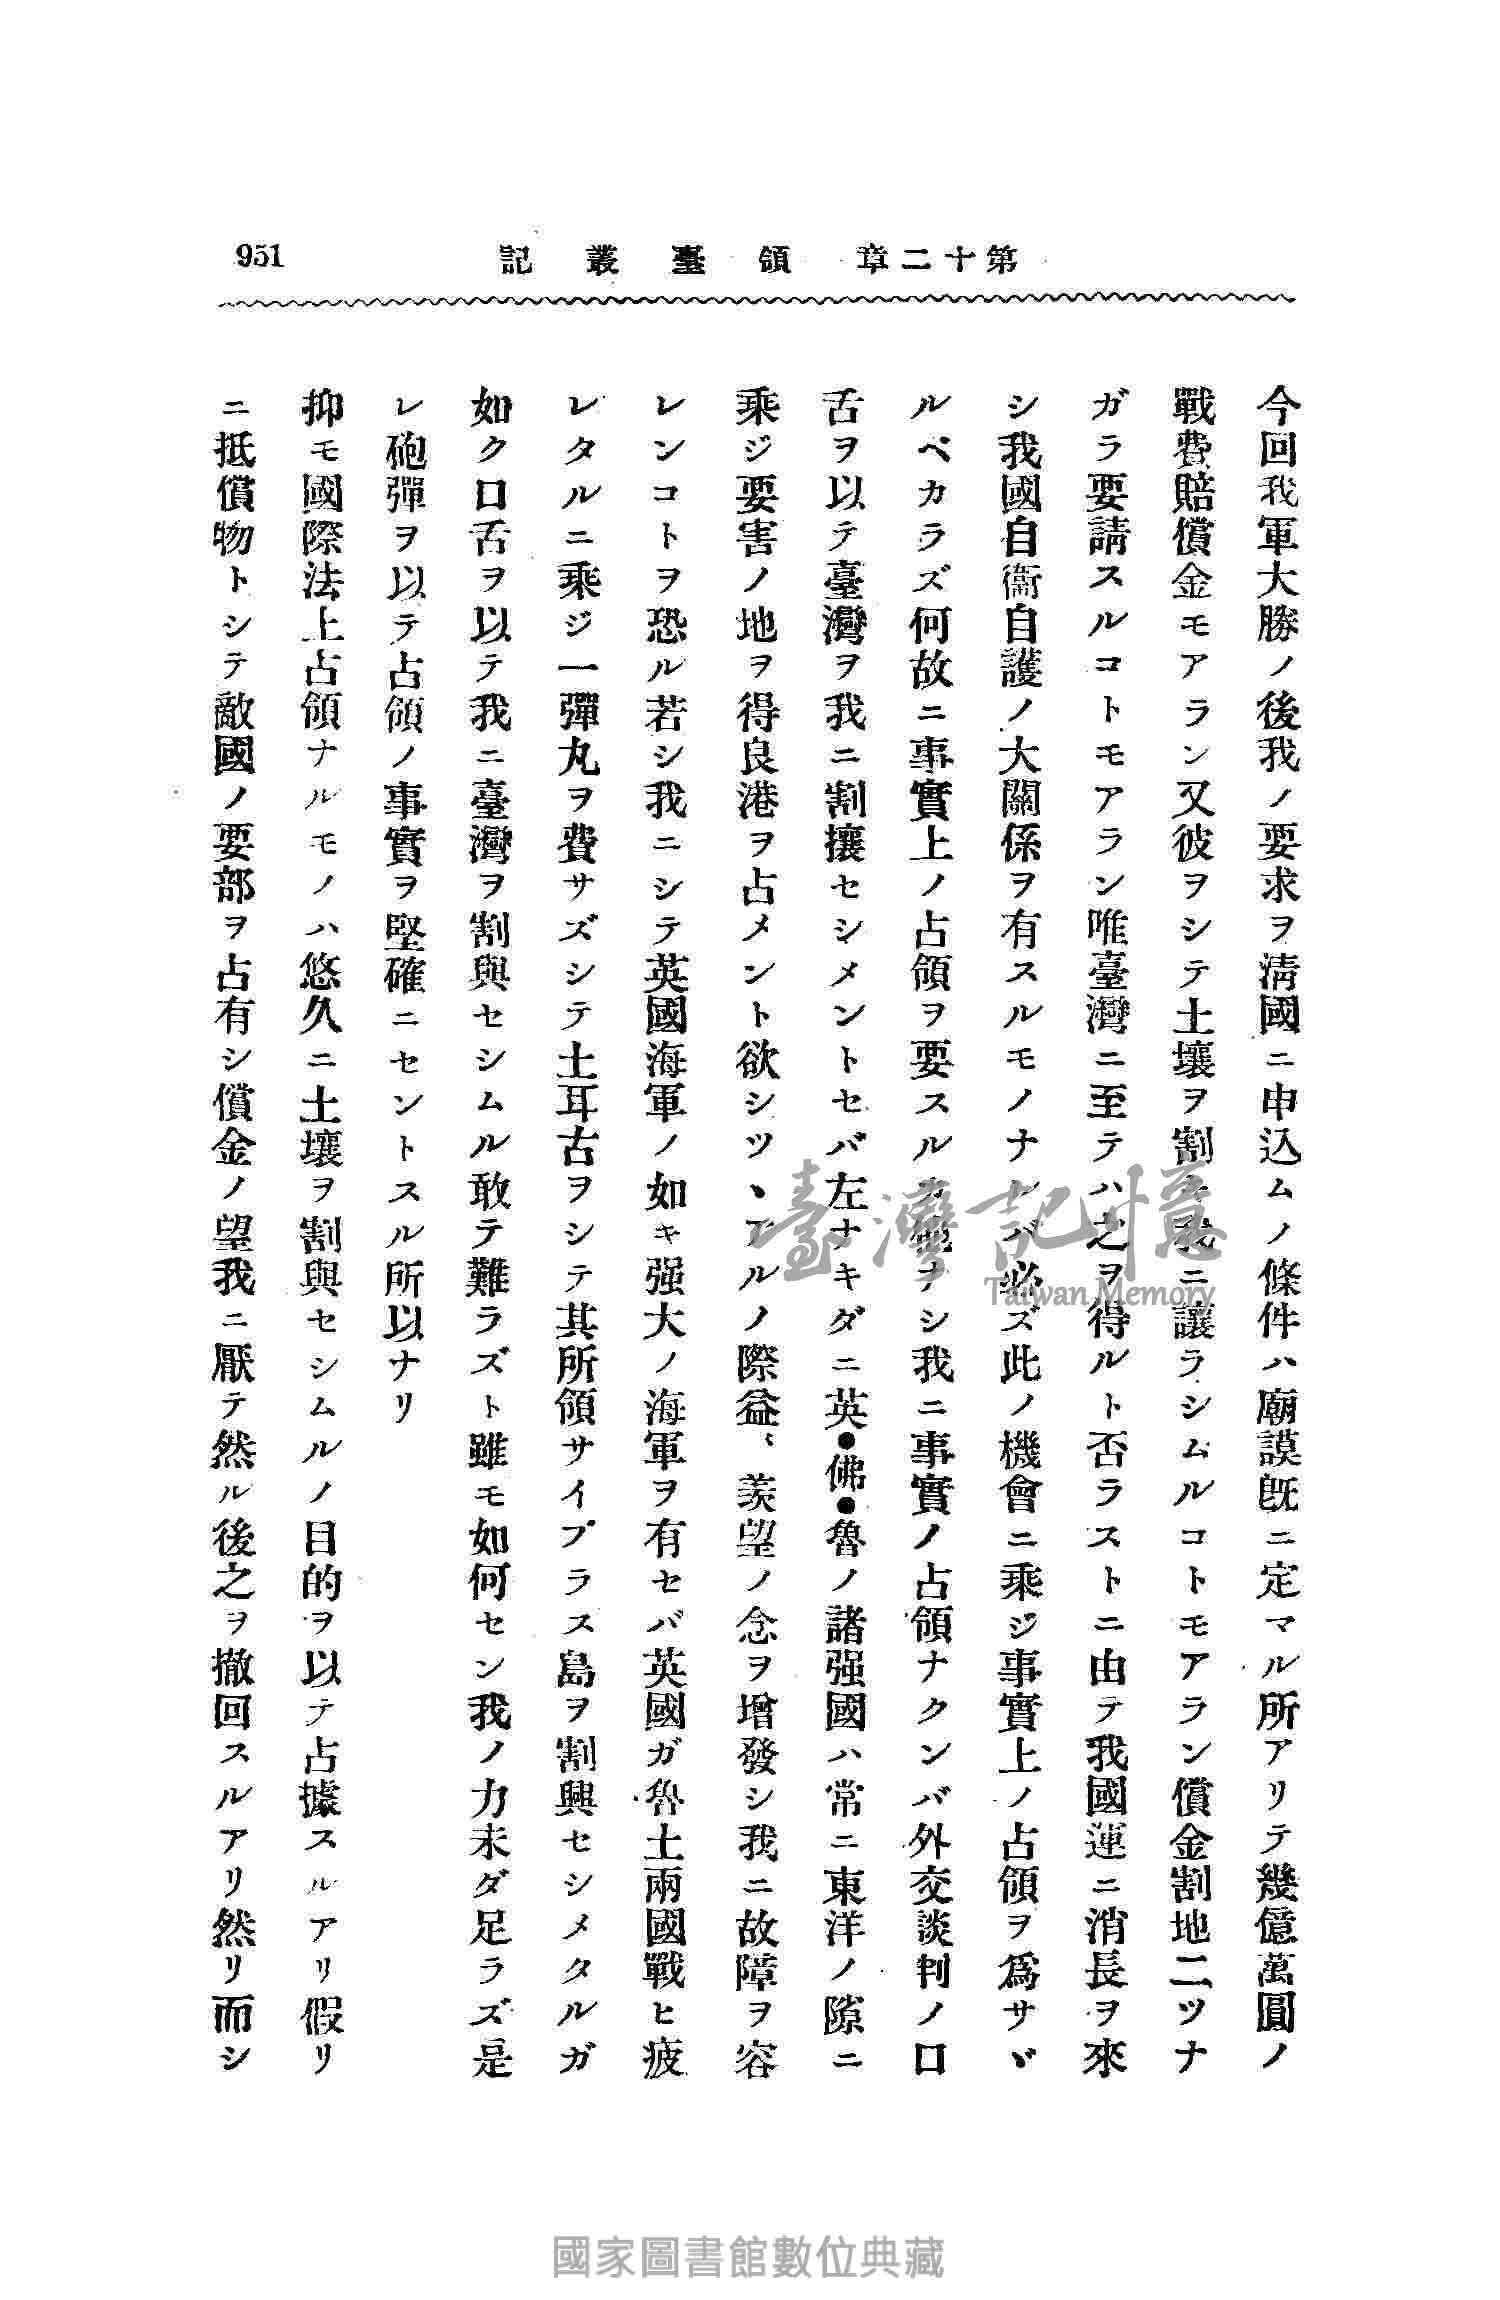 第十二章 領臺叢記
951
今回我軍大勝ノ後我ノ要求ヲ淸國ニ申込ムノ條件ハ廟謨旣ニ定マル所アリテ幾億萬圓ノ
戰費賠償金モアラン又彼ヲシテ土壤ヲ割キ我ニ讓ラシムルコトモアラン償金割地二ツナ
ガラ要請スルコトモアラン唯臺灣ニ至テハ之ヲ得ルト否ラストニ由テ我國運ニ消長ヲ來
シ我國自衞自護ノ大關係ヲ有スルモノナレバ必ズ此ノ機會ニ乘ジ事實上ノ占領ヲ爲サヾ
ルベカラズ何故ニ事實上ノ占領ヲ要スルカ他ナシ我ニ事實ノ占領ナクンバ外交談判ノ口
舌ヲ以テ臺灣ヲ我ニ割攘セシメントセバ左ナキダニ英●佛●魯ノ諸强國ハ常ニ東洋ノ隙ニ
乘ジ要害ノ地ヲ得良港ヲ占メント欲シツヽアルノ際益、羨望ノ念ヲ增發シ我ニ故障ヲ容
レンコトヲ恐ル若シ我ニシテ英國海軍ノ如キ强大ノ海軍ヲ有セバ英國ガ魯土兩國戰ヒ疲
レタルニ乘ジ一彈丸ヲ費サズシテ土耳古ヲシテ其所領サイプラス島ヲ割興セシメタルガ
如ク口舌ヲ以テ我ニ臺灣ヲ割與セシムル敢テ難ラズト雖モ如何セン我ノ力未ダ足ラズ是
レ砲彈ヲ以テ占領ノ事實ヲ堅確ニセントスル所以ナリ
抑モ國際法上占領ナルモノハ悠久ニ土壤ヲ割與セシムルノ目的ヲ以テ占據スルアリ假リ
ニ抵償物トシテ敵國ノ要部ヲ占有シ償金ノ望我ニ厭テ然ル後之ヲ撤回スルアリ然リ而シ
臺灣記憶
Taiwan Memory
國家圖書館數位典藏